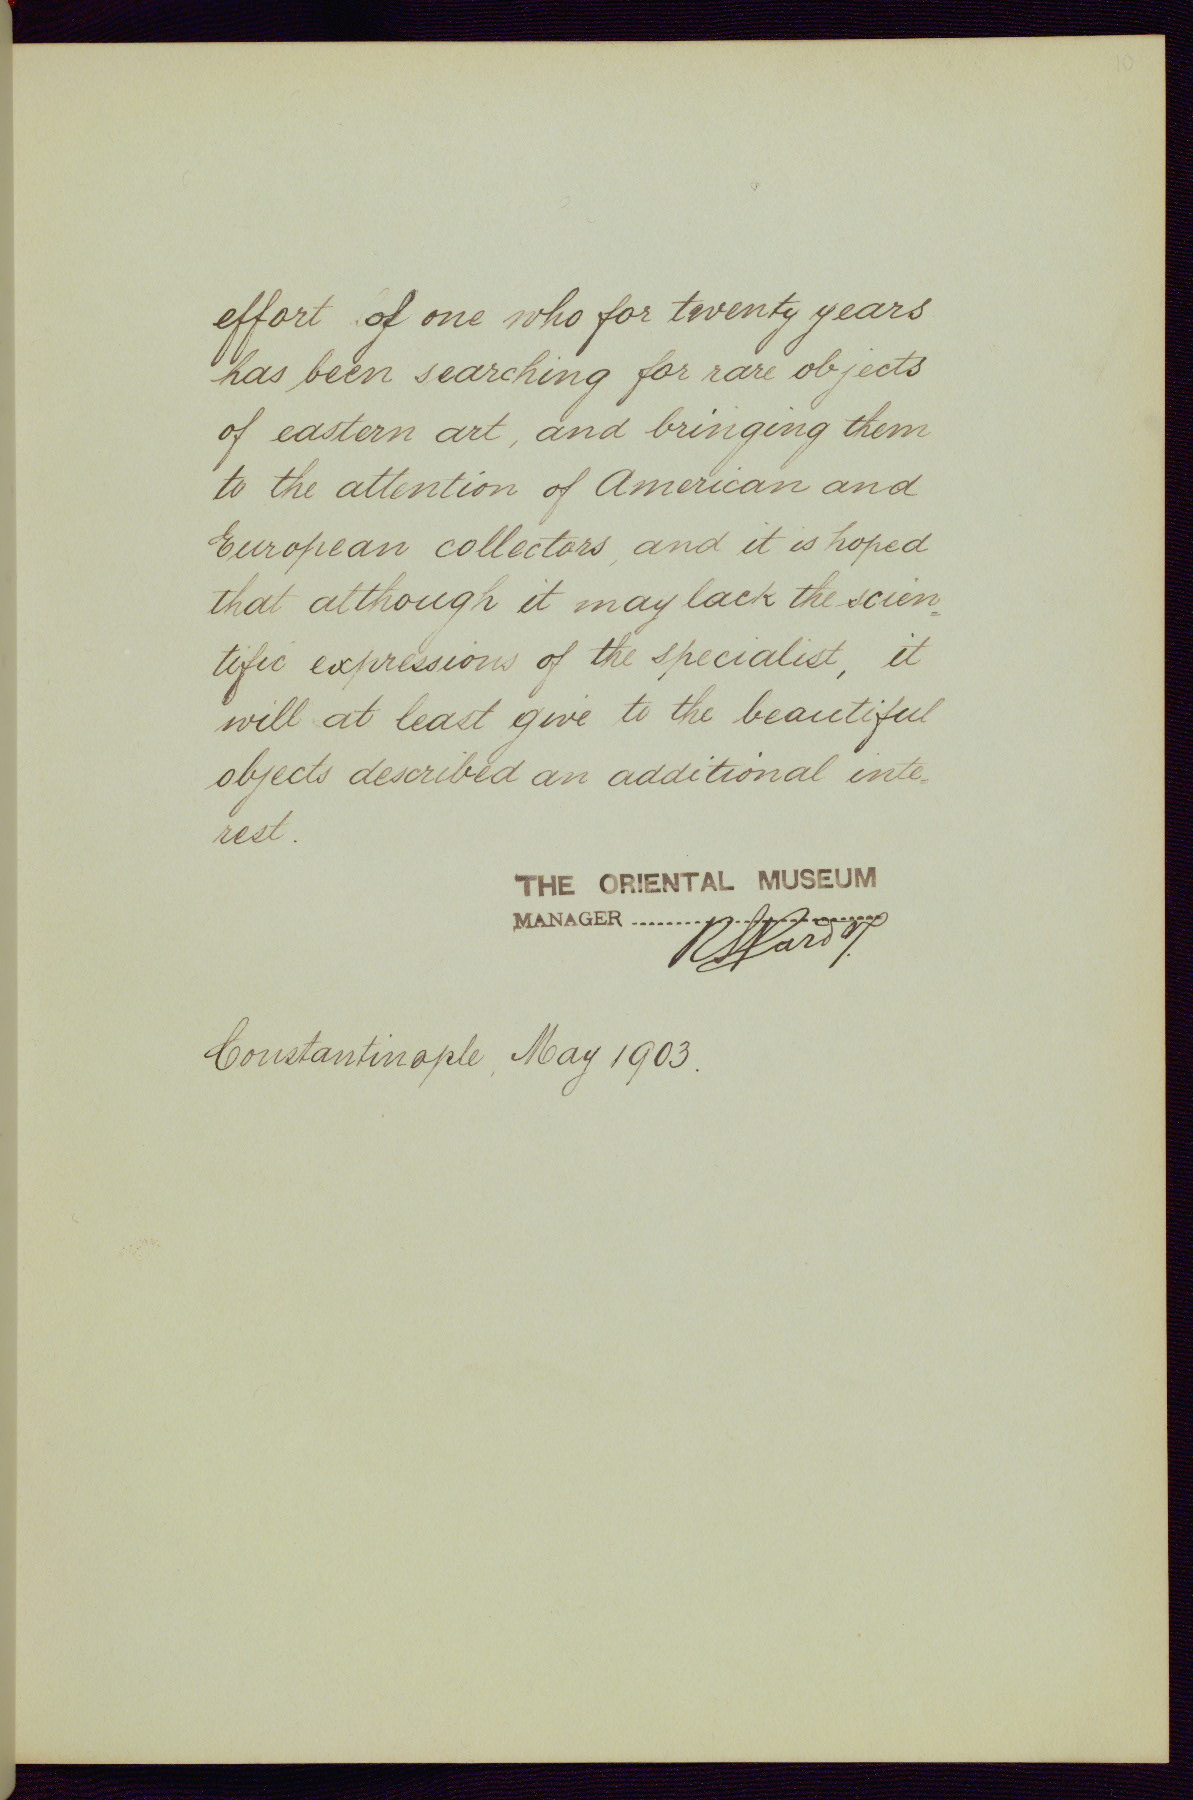 10
effort of one who for twenty years
has been searching for rare objects
of eastern art, and bringing them
to the attention of American and
European collectors, and it is hoped
that although it may lack the scien=
tific expressions of the specialist, it
will at least give to the beautiful
objects described an additional inte-
rest.
THE ORIENTAL MUSEUM
MANAGER
Constantinople, May 1903.